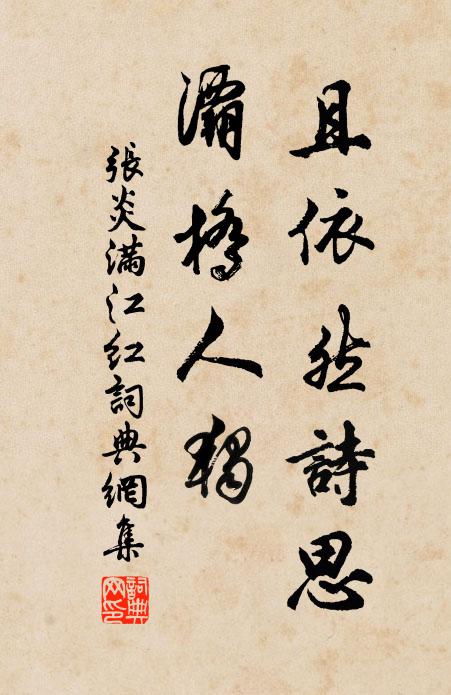 且依然詩思
灞橋人獨
張炎滿江紅詞典網集
詞典网印